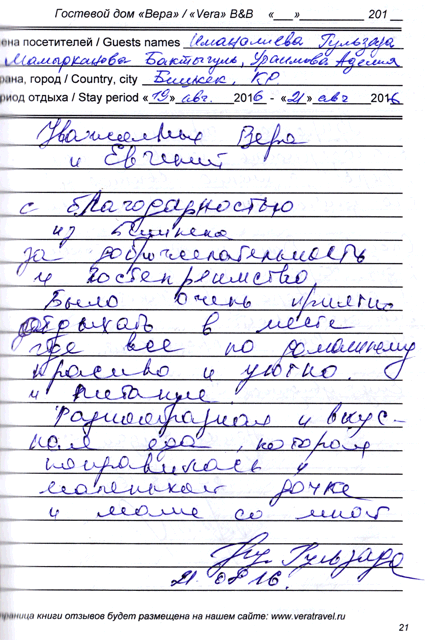 Гостевой дом «Вера» / «Vera» B&B «___»___________ 201__
ена посетителей / Guests names Иманалиева Гульзада
Мамырканова Бактыгуль, Ураимова Аделия
рана, город / Country, city Бишкек, КР.
риод отдыха / Stay period «19» авг. 2016 - «21» авг 2016
Уважаемых Вера
и Евгений
с благодарностью
из Бишкека
за доброжелательность
и гостеприимство
Было очень приятно
отдыхать в месте
где все по домашнему
красиво и уютно.
и питание
разнообразная и вкус-
ная еда, которая
понравилась и
маленькой дочке
и маме со мной
Гульзада
21.08.16.
раница книги отзывов будет размещена на нашем сайте: www.veratravel.ru
21